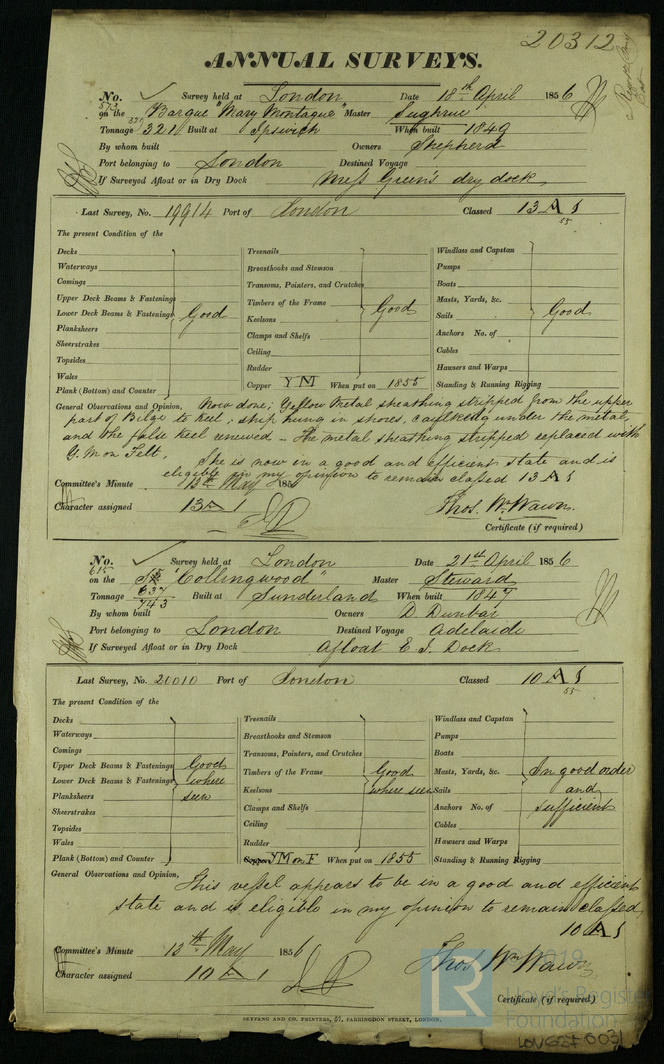 20312
ANNUAL SURVEYS.
No. 573 Survey held at London Date 18th April 1856
on the Barque "Mary Montague" Master Sughrue
Tonnage 321 Built at Ipswich When built 1849
By whom built Owners Shepherd
Port belonging to London Destined Voyage
If Surveyed Afloat or in Dry Dock Mess Green's dry dock
Last Survey, No. 19914 Port of London Classed 13 A 1
55
The present Condition of the
Decks
Waterways
Comings
Upper Deck Beams & Fastenings
Lower Deck Beams & Fastenings Good
Planksheers
Sheerstrakes
Topsides
Wales
Plank (Bottom) and Counter
Treenails
Breasthooks and Stemson
Transoms, Pointers, and Crutches
Timbers of the Frame Good
Keelsons
Clamps and Shelfs
Ceiling
Rudder
Copper YM When put on 1855
Windlass and Capstan
Pumps
Boats
Masts, Yards, &c.
Sails Good
Anchors No. of
Cables
Hawsers and Warps
Standing & Running Rigging
General Observations and Opinion, Now done; Yellow Metal sheathing stripped from the upper
part of Bilge to keel; ship hung in shores, caulked under the metal,
and the false keel renewed – The metal sheathing stripped replaced with
Y. M on Felt.
She is now in a good and efficient state and is
eligible in my opinion to remain classed 13 A 1
Committee's Minute 13th May 1856
Character assigned 13 A 1 Thos. Wm. Wawn.
Certificate (if required)
No. 615 Survey held at London Date 21st April 1856
on the "Collingwood" Master Steward
Tonnage 637 743 Built at Sunderland When built 1847
By whom built Owners D Dunbar
Port belonging to London Destined Voyage Adelaide
If Surveyed Afloat or in Dry Dock Afloat E. I. Dock
Last Survey, No. 20010 Port of London Classed 10 A 1
55
The present Condition of the
Decks
Waterways
Comings
Upper Deck Beams & Fastenings Good
Lower Deck Beams & Fastenings where
Planksheers seen
Sheerstrakes
Topsides
Wales
Plank (Bottom) and Counter
Treenails
Breasthooks and Stemson
Transoms, Pointers, and Crutches
Timbers of the Frame Good
Keelsons where seen
Clamps and Shelfs
Ceiling
Rudder
Copper YM on F When put on 1855
Windlass and Capstan
Pumps
Boats
Masts, Yards, &c. In good order
Sails and
Anchors No. of sufficient
Cables
Hawsers and Warps
Standing & Running Rigging
General Observations and Opinion, This vessel appears to be in a good and efficient
state and is eligible in my opinion to remain classed
10 A 1
Committee's Minute 13th May 1856
Character assigned 10 A 1 Thos Wm Wawn
Certificate (if required)
SEYFANG AND CO. PRINTERS, 57, FARRINGDON STREET, LONDON.
LR
2019
Lloyd's Register
Foundation
LON637-0031